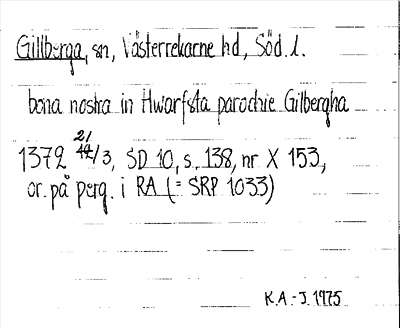 Gillberga, sn, Västerrekarne hd, Söd. l.
bona nostra in Hwarfsta parochie Gilbergha
21
1372 12/3, SD 10, s. 138, nr X 153,
or. på perg. i RA (= SRP 1033)
K.A.-J. 1975